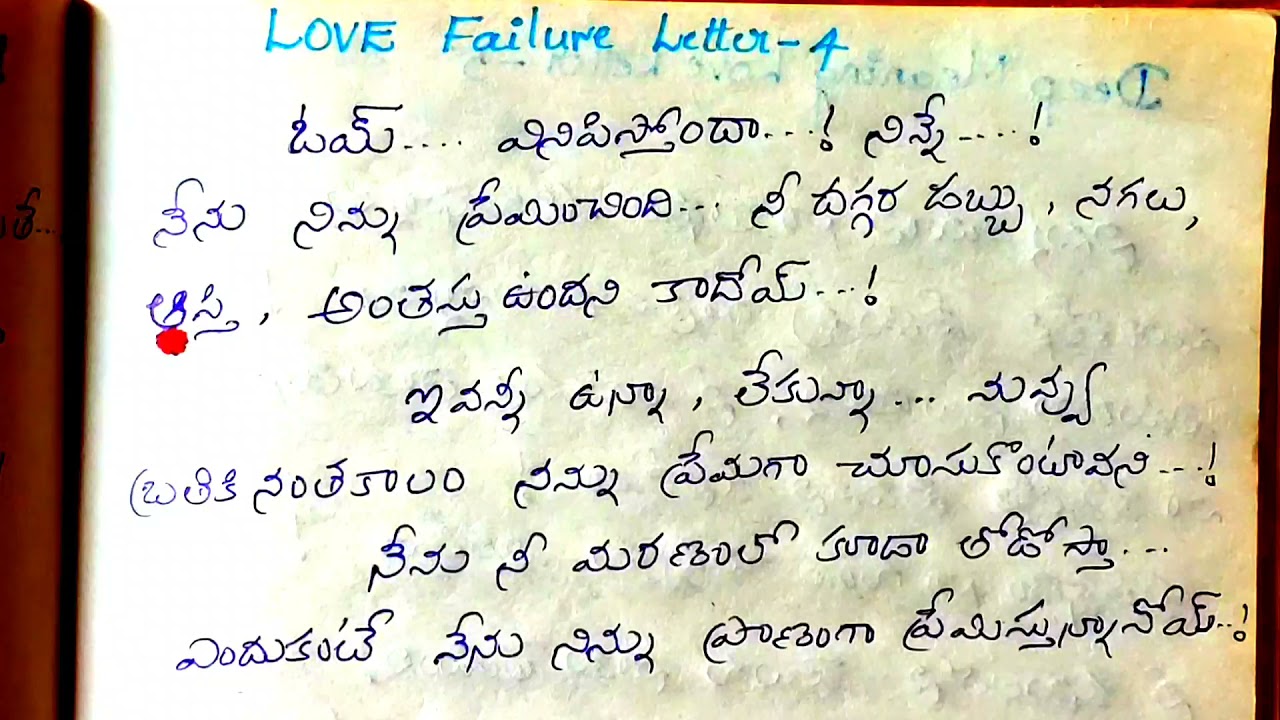 LOVE Failure Letter-4
ఓయ్.... వినిపిస్తోందా...! నిన్నే....!
నేను నిన్ను ప్రేమించింది... నీ దగ్గర డబ్బు, నగలు,
ఆస్తి, అంతస్తు ఉందని కాదోయ్...!
ఇవన్నీ ఉన్నా, లేకున్నా... నువ్వు
బ్రతికినంతకాలం నన్ను ప్రేమగా చూసుకొంటావని...!
నేను నీ మరణంలో కూడా తోడోస్తా...
ఎందుకంటే నేను నిన్ను ప్రాణంగా ప్రేమిస్తున్నానోయ్..!